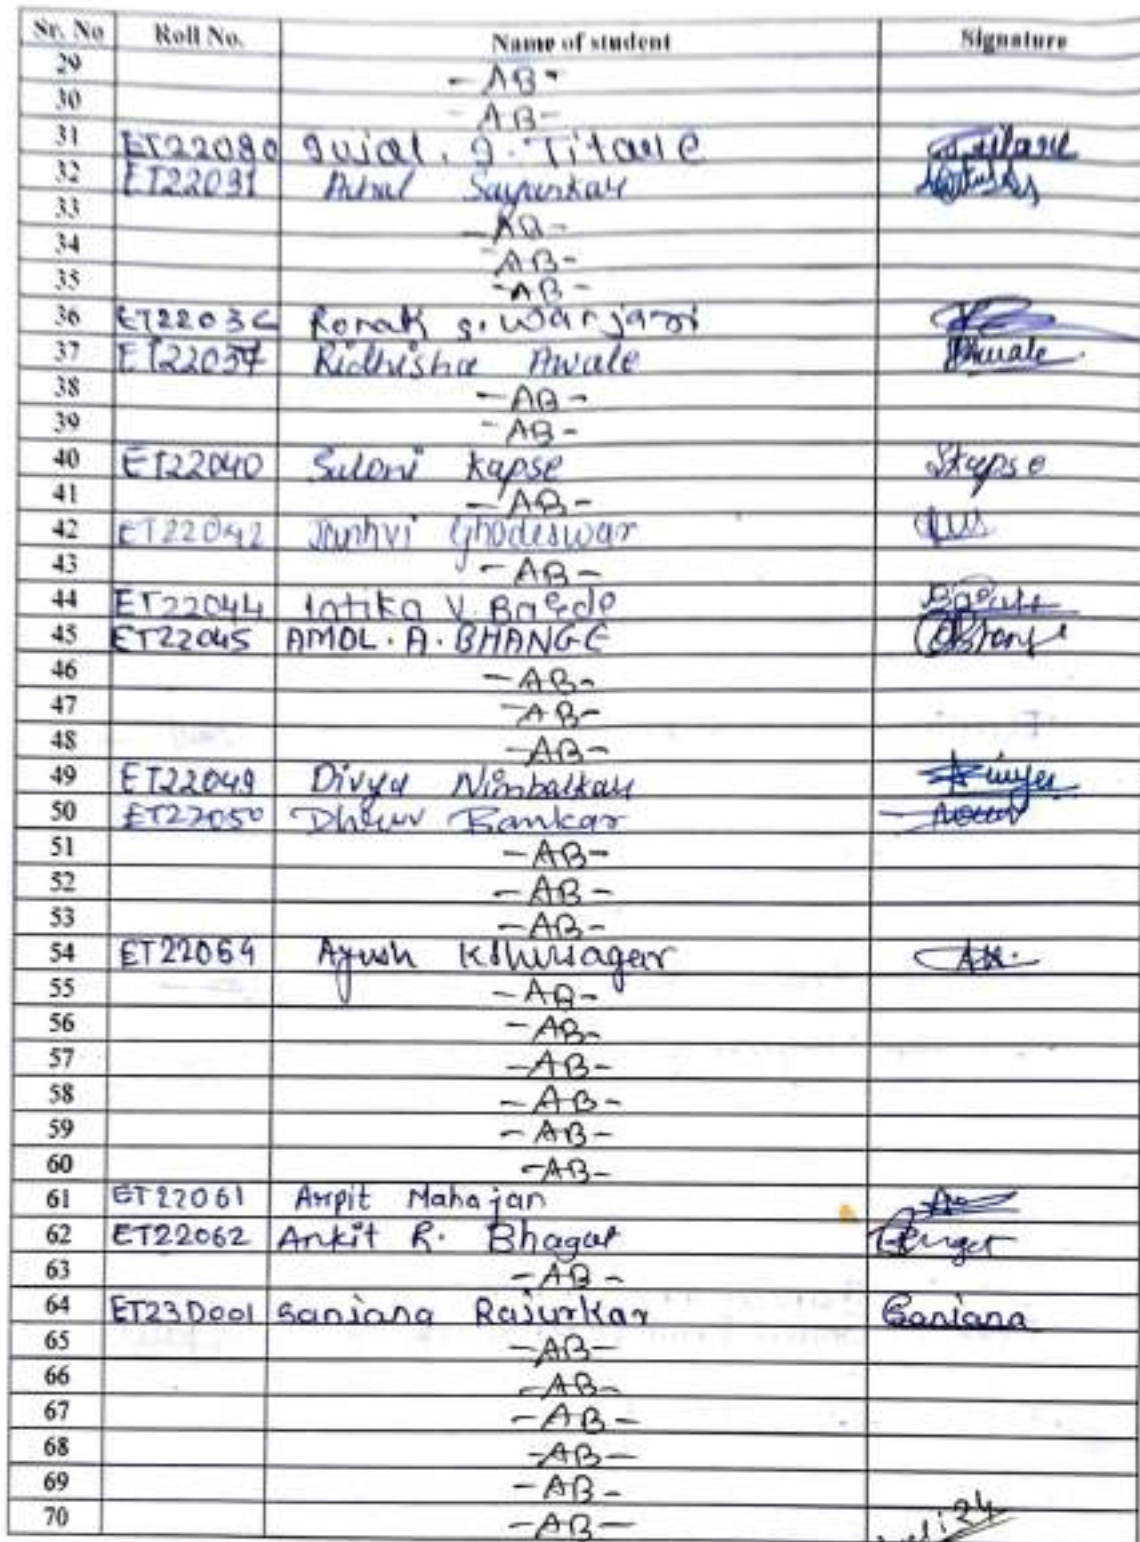 Sr. No Roll No. Name of student Signature
29 - AB -
30 - AB -
31 ET22030 Sujal. J. Titare
32 ET22031 Sayankar
33 - AB -
34 - AB -
35 - AB -
36 ET22036 Ronak S. Wanjari
37 ET22037 Ridhisha Awale Awale
38 - AB -
39 - AB -
40 ET22040 Saloni Kapse SKapse
41 - AB -
42 ET22042 Janhvi Ghodeswar
43 - AB -
44 ET22044 V.
45 ET22045 AMOL. A. BHANGE
46 - AB -
47 - AB -
48 - AB -
49 ET22049 Divya Nimbalkar
50 ET22050 Dhruv Bankar
51 - AB -
52 - AB -
53 - AB -
54 ET22054 Ayush Kshirsagar AK.
55 - AB -
56 - AB -
57 - AB -
58 - AB -
59 - AB -
60 - AB -
61 ET22061 Arpit Mahajan
62 ET22062 Ankit R. Bhagat
63 - AB -
64 ET23D001 Sanjana Rajurkar Sanjana
65 - AB -
66 - AB -
67 - AB -
68 - AB -
69 - AB -
70 - AB -